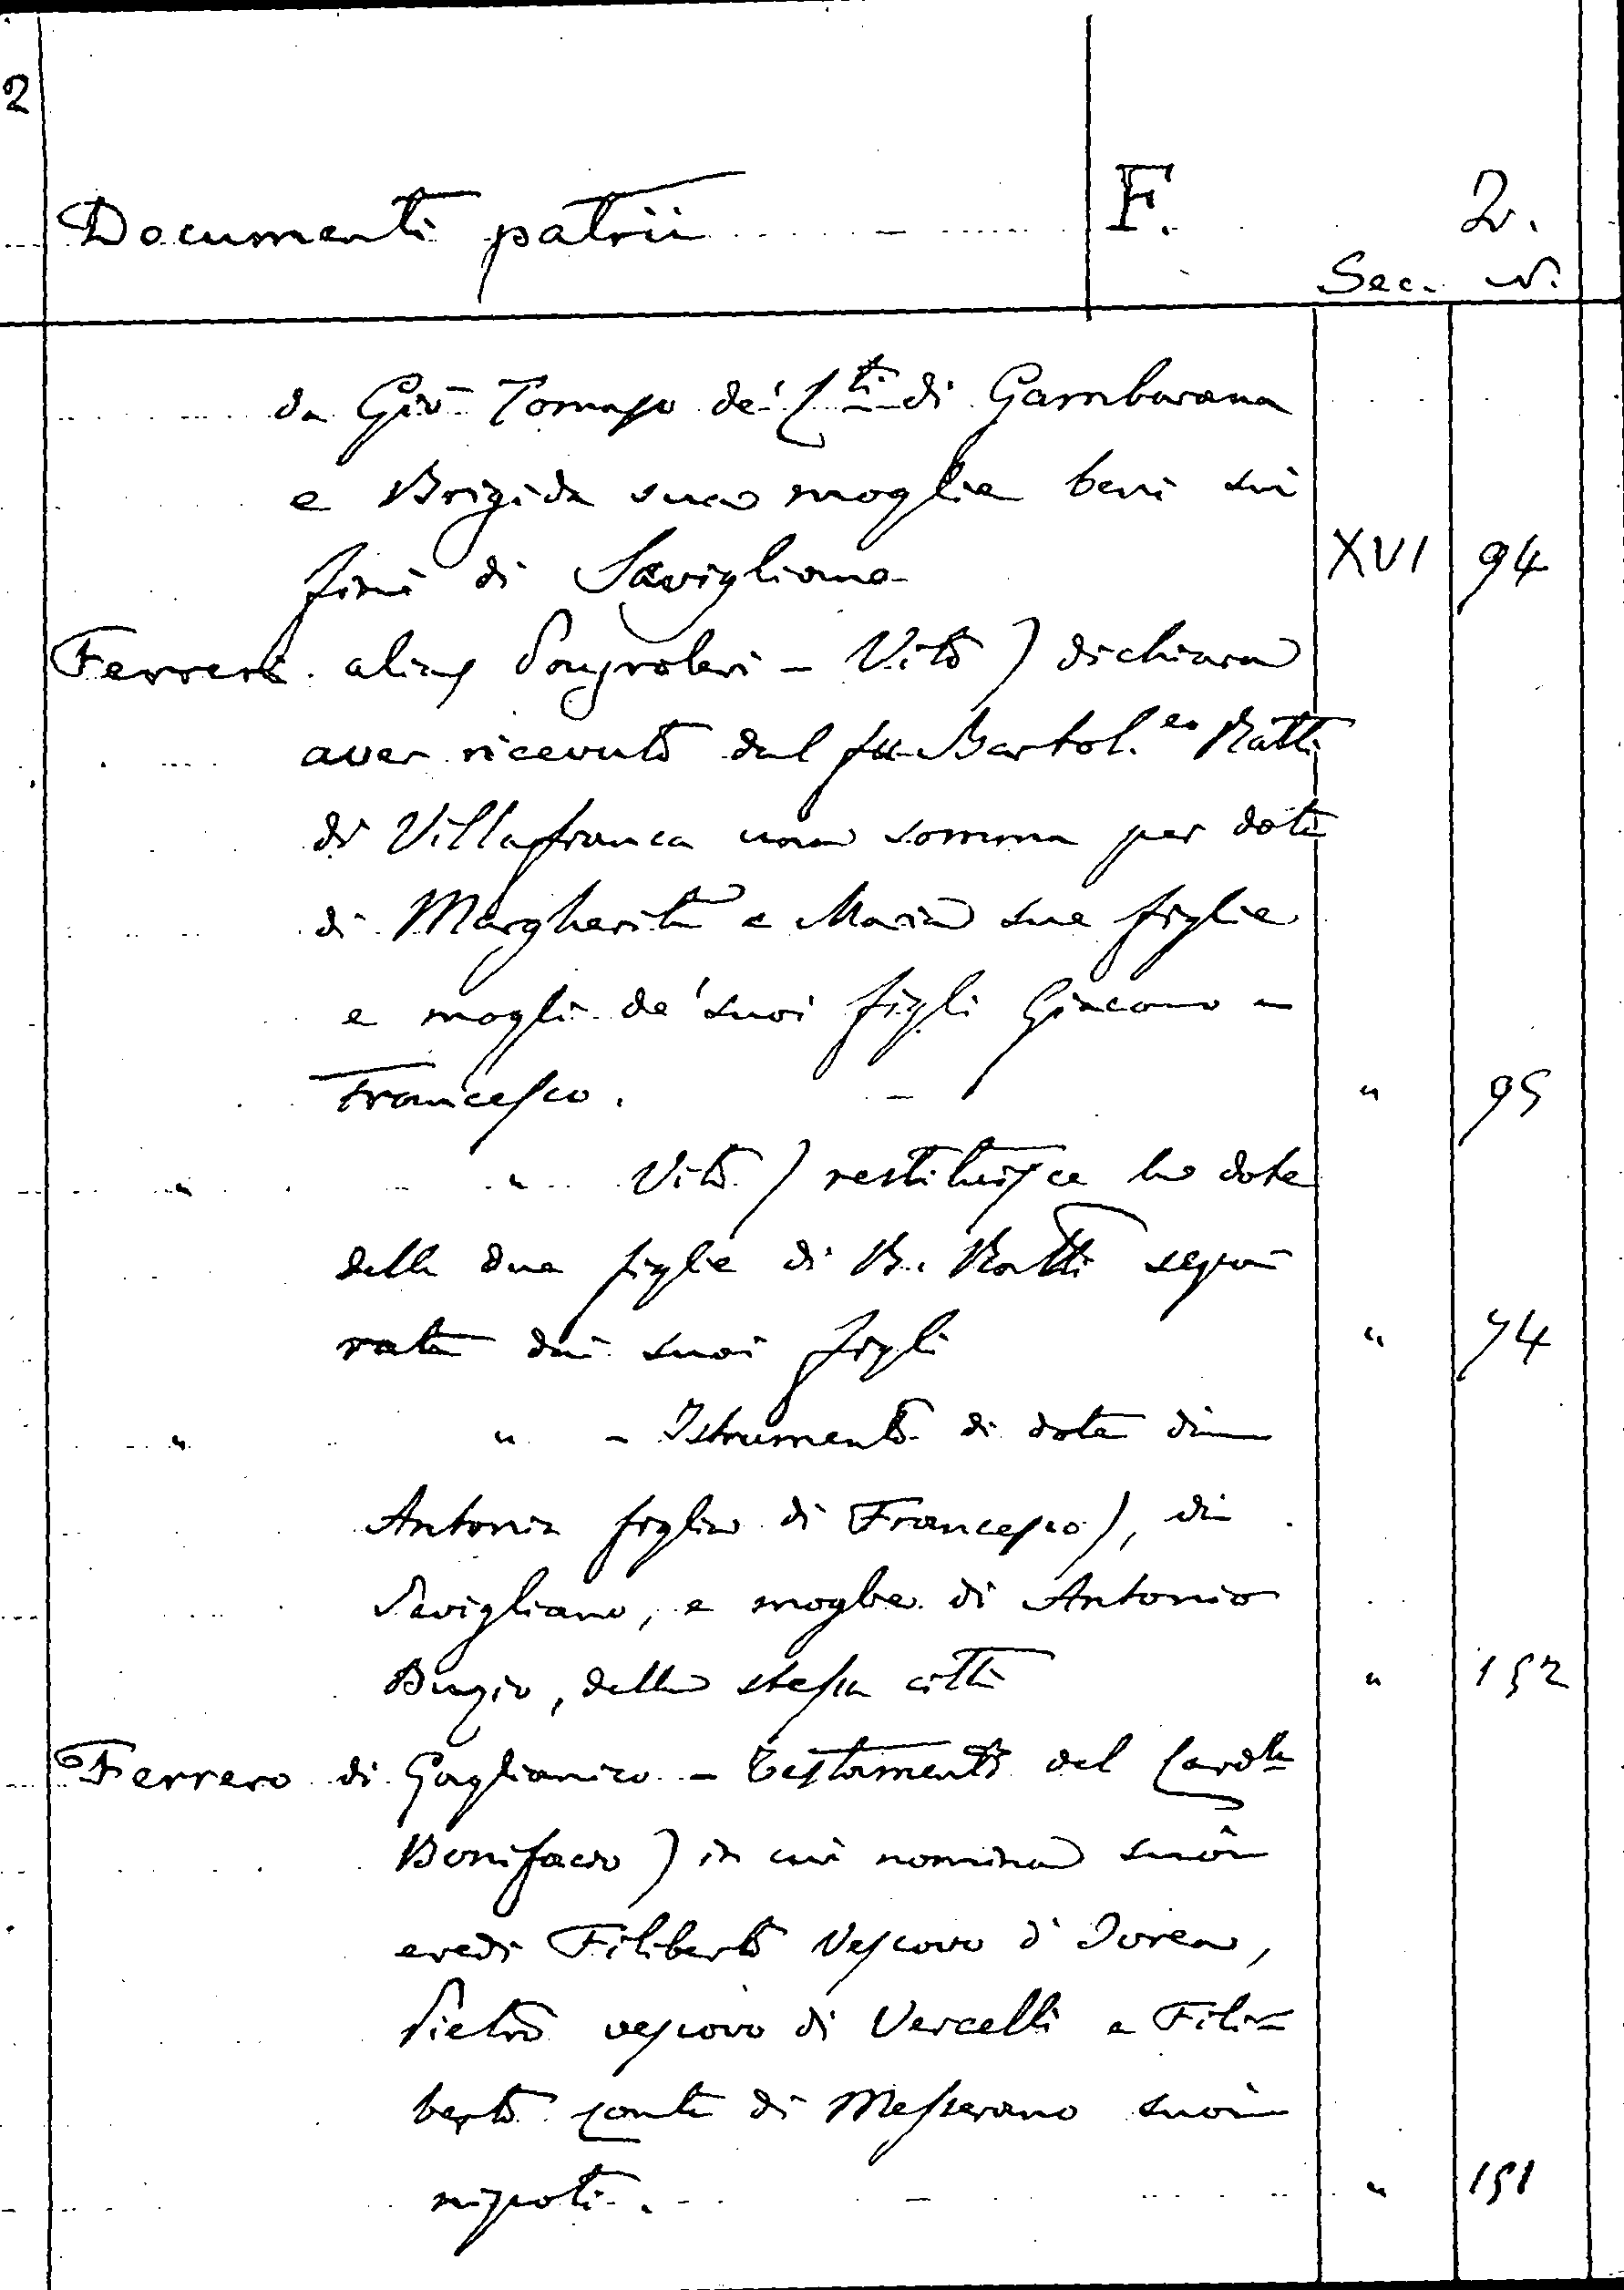 2
Documenti patrii F. 2.
Sec. N.
da Gio Tomaso de' Cti di Gambarana
e Brigida sua moglie beni sui
fini di Savigliano XVI 94
Ferreri alias - Vito) dichiara
aver ricevuto dal fu Bartol.eo Ratti
di Villafranca una somma per dote
di Margherita e Maria sue figlie
e mogli de' suoi figli Giacomo e
Francesco. " 95
" " Vito) restituisce la dote
delle due figlie di B. Ratti sepa
rate dai suoi figli " 74
" " - Istrumento di dote di
Antonia figlia di Francesco), di
Savigliano, e moglie di Antonio
della stessa città " 152
Ferrero di Gaglianico - Testamento del Cardle
Bonifacio) in cui nomina suoi
eredi Filiberto Vescovo d'Ivrea,
Pietro vescovo di Vercelli e Fili-
berto conte di Messerano suoi
nipoti. " 151